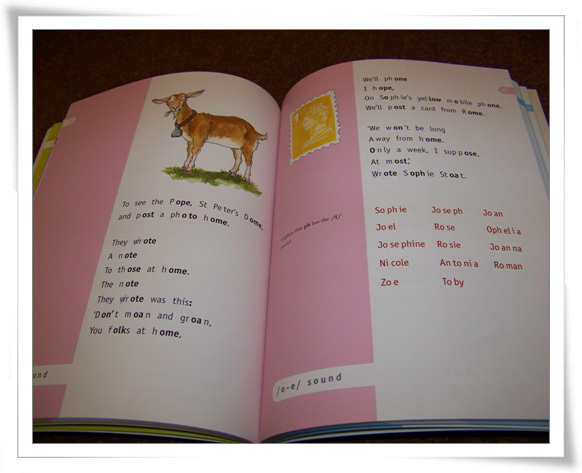 To see the Pope, St Peter's Dome,
and post a photo home.
They wrote
A note
To those at home.
The note
They wrote was this:
'Don't moan and groan,
You folks at home,
und
We'll phone
I hope,
On Sophie's yellow mobile phone.
We'll post a card from Rome.
'We won't be long
Away from home.
Only a week, I suppose.
At most,'
Wrote Sophie Stoat.
Explain that ph has the /f/
sound
Sophie Joseph Joan
Joel Rose Ophelia
Josephine Rosie Joanna
Nicole Antonia Roman
Zoe Toby
/o-e/ sound